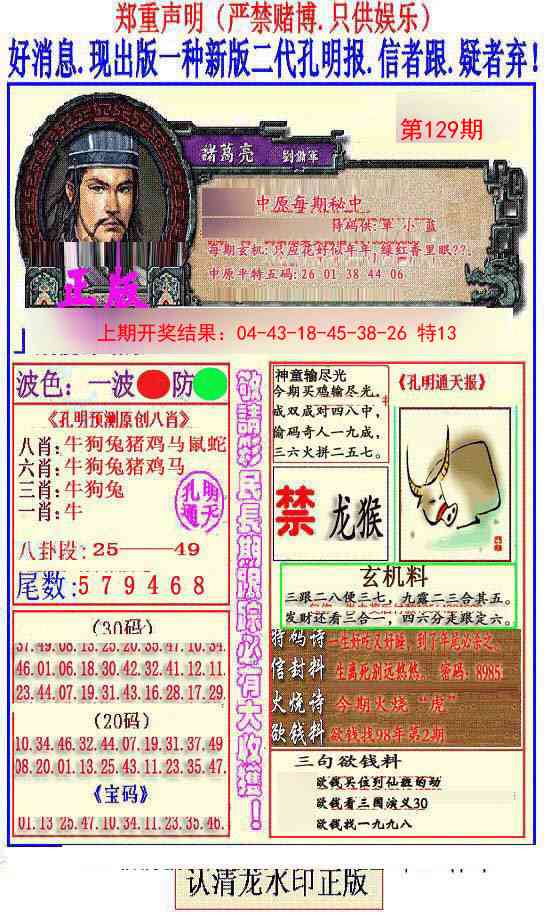 郑重声明（严禁赌博.只供娱乐）
好消息.现出版一种新版二代孔明报.信者跟.疑者弃!
第129期
諸葛亮 劉備軍
中原每期秘中
单 小 蓝
每期玄机:只应花好似年年 绿红香里眠??.
中原平特五码:26 01 38 44 06
正版
上期开奖结果：04-43-18-45-38-26 特13
波色：一波 防
《孔明预测原创八肖》
八肖:牛狗兔猪鸡马鼠蛇
六肖:牛狗兔猪鸡马
三肖:牛狗兔
一肖:牛
孔明通天
八卦段:25——49
尾数:579468
（30码）
37.49.08.13.25.20.35.47.10.34
46.01.06.18.30.42.32.41.12.11
23.44.07.19.31.43.16.28.17.29
（20码）
10.34.46.32.44.07.19.31.37.49
08.20.01.13.25.43.11.23.35.47
《宝码》
01.13 25.47.10.34.11.23.35.46.
敬請彩民長期跟踪必有大收獲！
神童输尽光
今期买鸡输尽光，
成双成对四八中，
偷码奇人一九成，
三六火拼二五七。
《孔明通天报》
禁 龙猴
玄机料
三跟二八便三七，九露二三合其五。
发财还看三合一，四六分走跟定六。
特码诗 一生好吃又好睡，到了年尾必杀之。
信封料 生离死别远悠悠。 密码：8985.
火烧诗 今期火烧“虎”
欲钱料 欲钱找98年第2期
三句欲钱料
欲钱买住到仙报的动
欲钱看三国演义30
欲钱找一九九八
认清龙水印正版